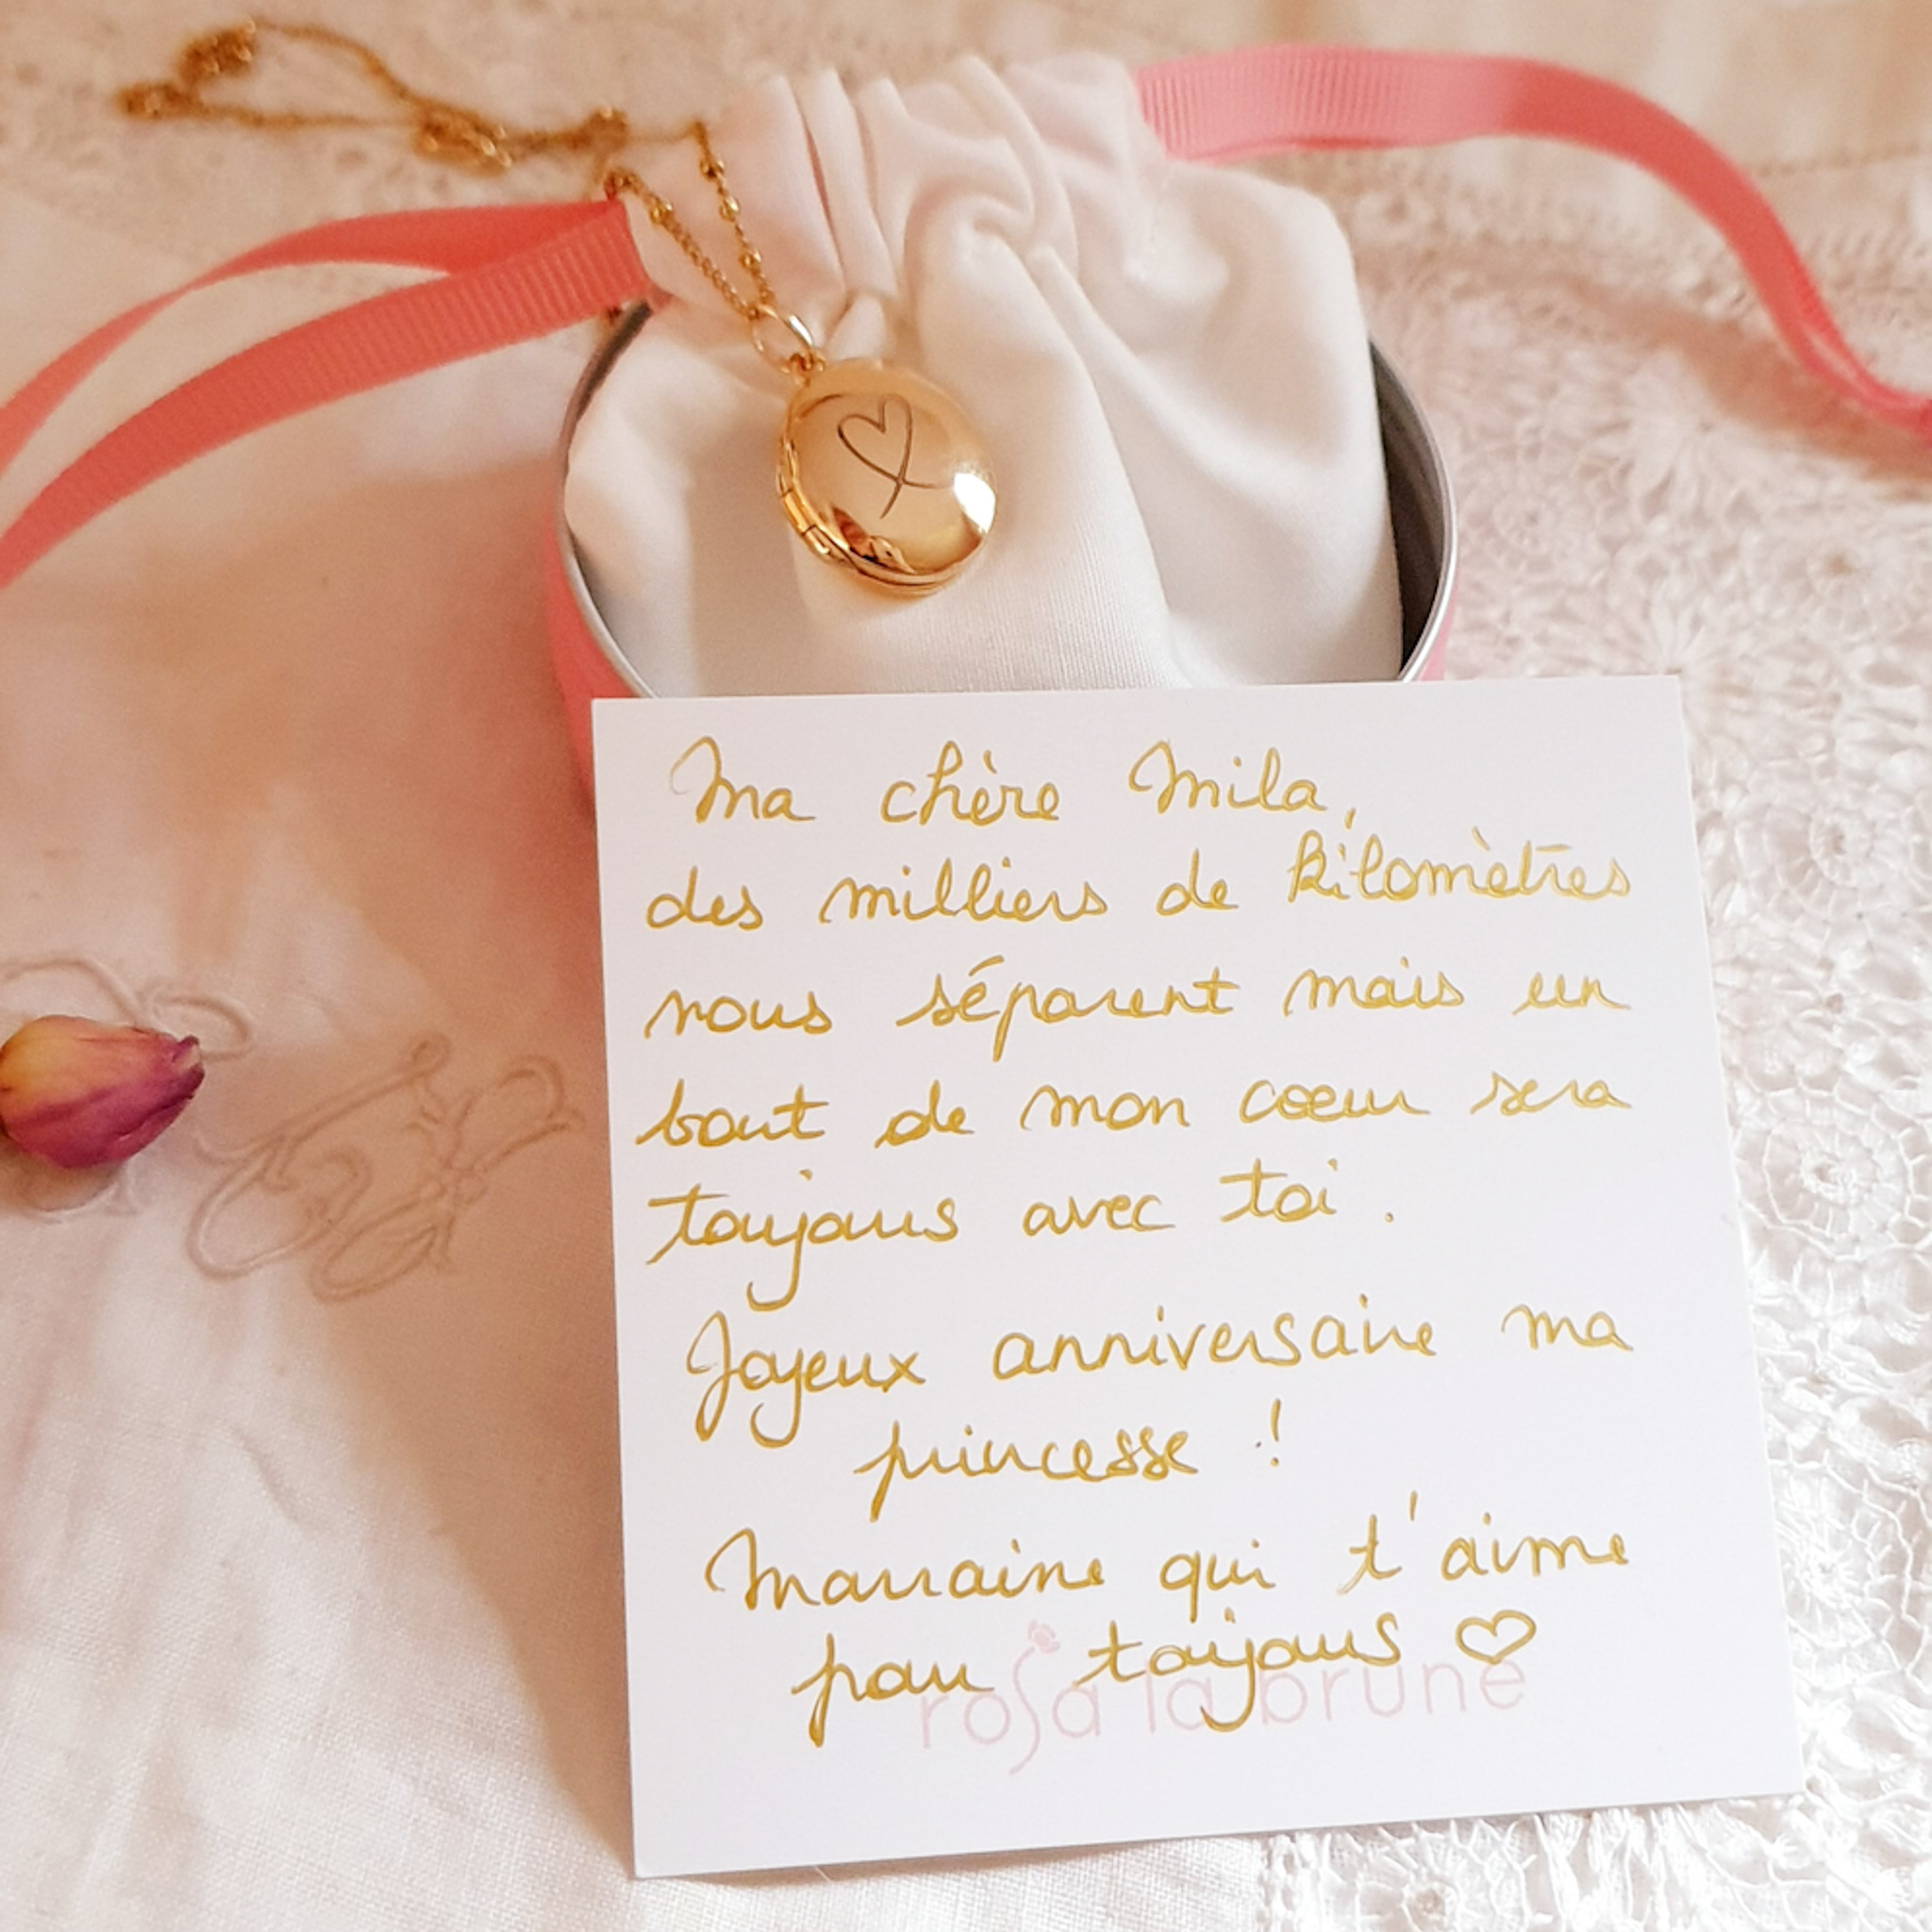 Ma chère Mila,
des milliers de kilomètres
nous séparent mais un
bout de mon coeur sera
toujours avec toi.
Joyeux anniversaire ma
princesse !
Marraine qui t'aime
pour toujours ♡
rosa la brune